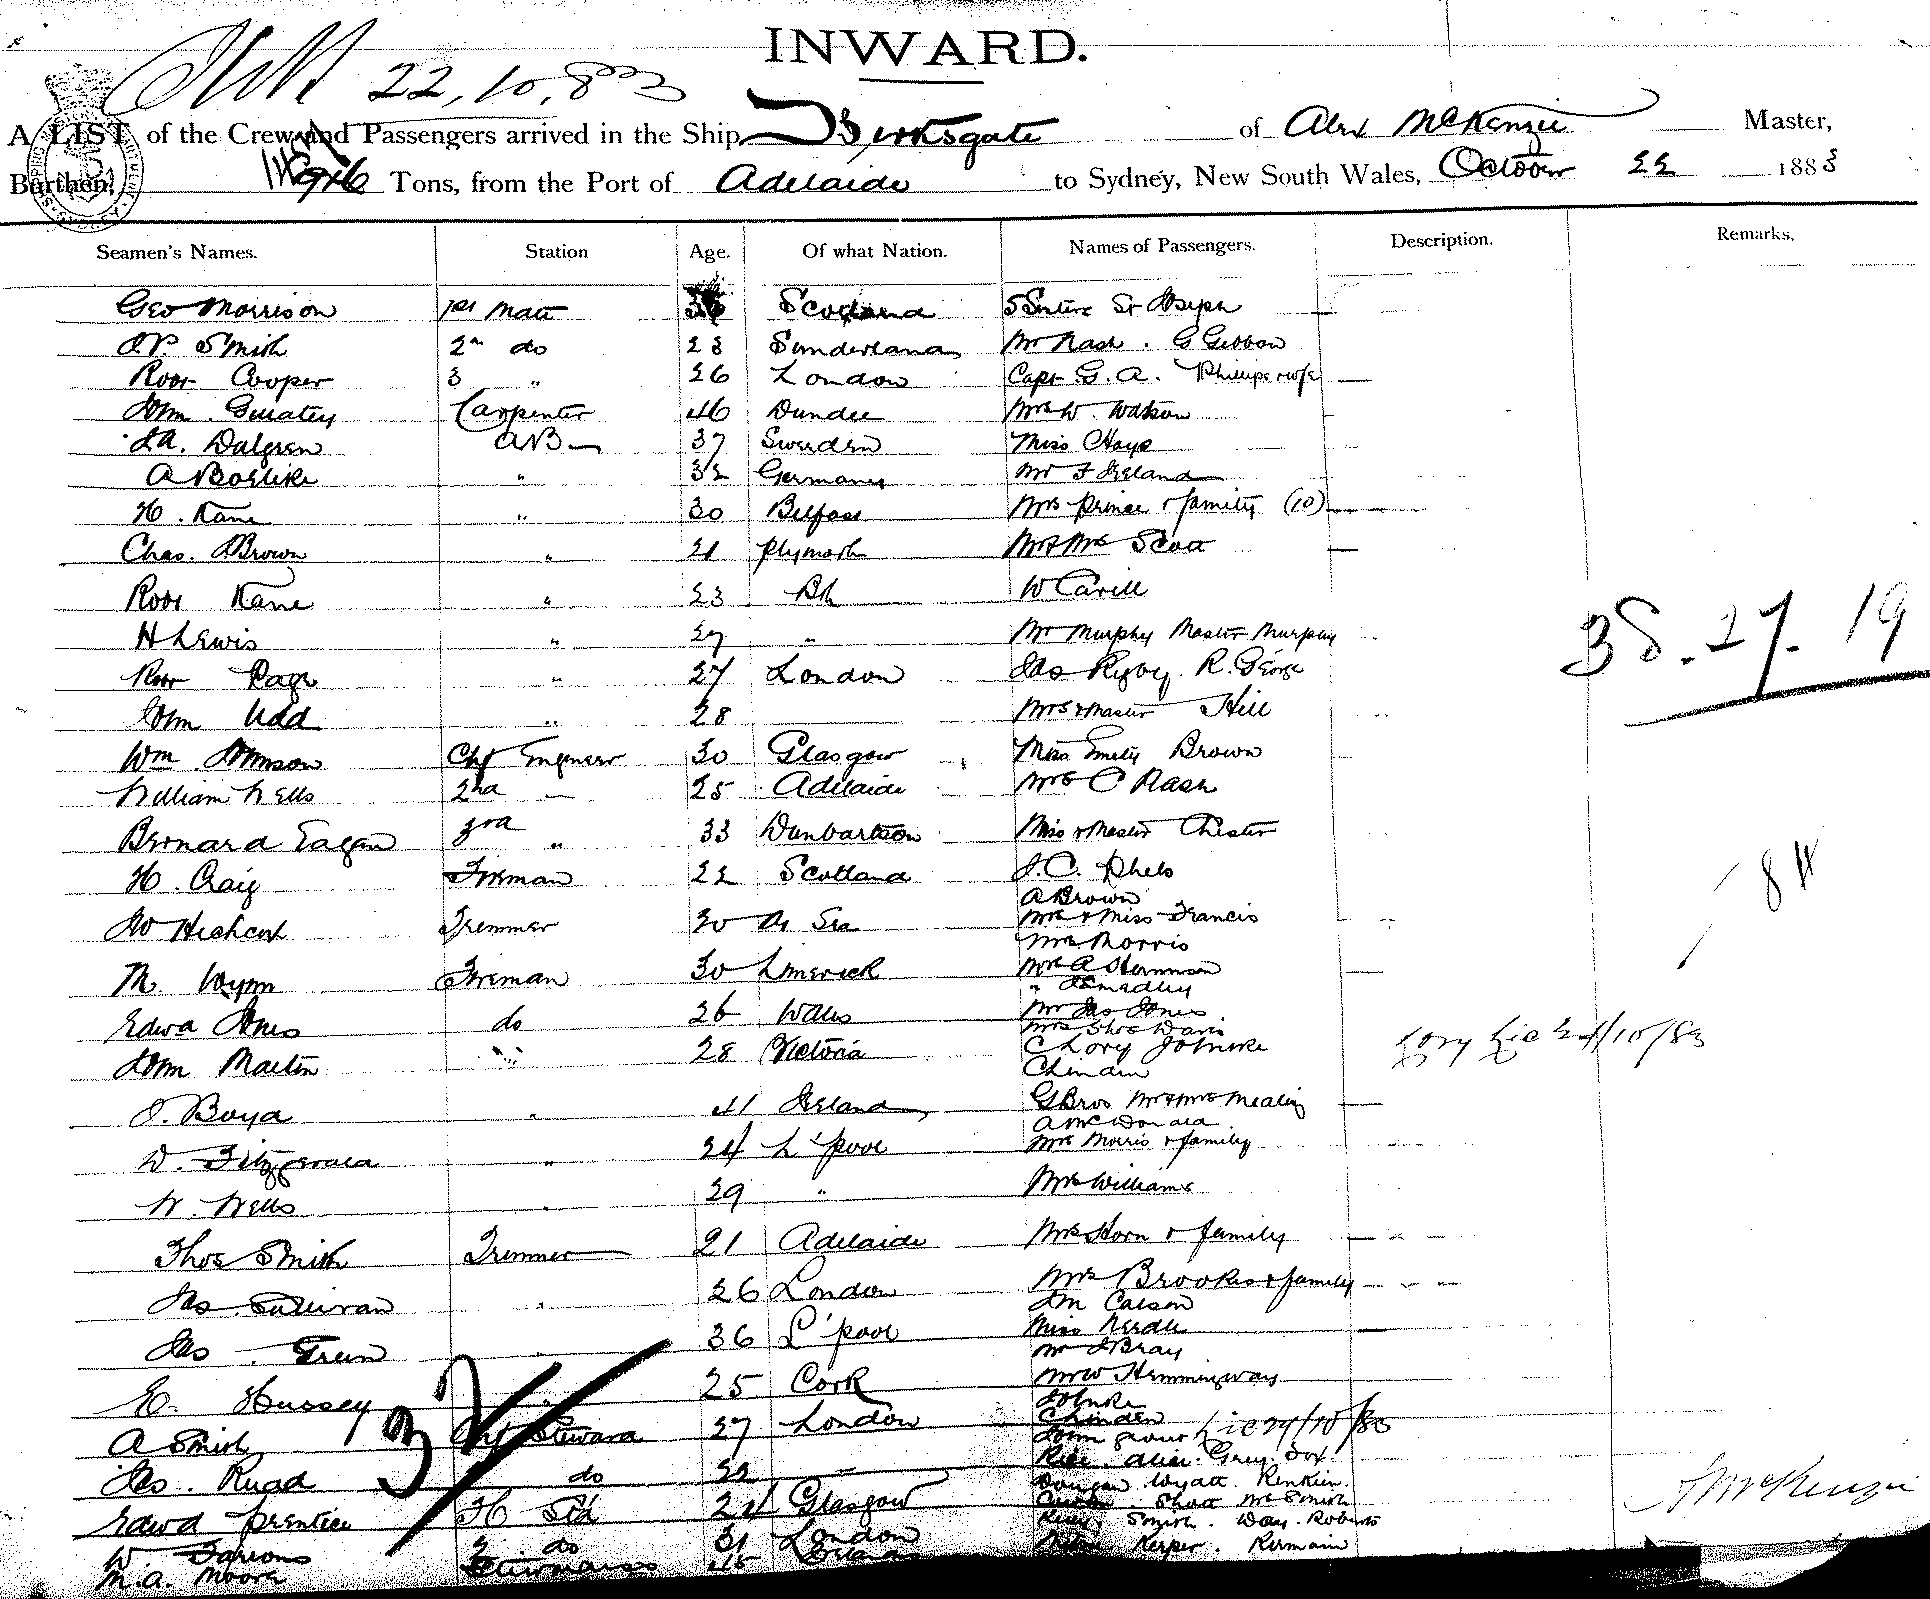 INWARD.
22,10,883
A LIST of the Crew and Passengers arrived in the Ship Birksgate of Alex McKenzie Master,
Burthen, 916 Tons, from the Port of Adelaide to Sydney, New South Wales, October 22 1883
Seamen's Names. Station Age. Of what Nation. Names of Passengers. Description. Remarks.
Geo Morrison 1st Mate Scotland St Joseph
Smith 2nd do 23 Sunderland Mr Nash . G Gibbon
Robt Cooper 3 " 26 London Capt G. A. Phillips & wife
John Carpenter 46 Dundee Mrs W. Watson
Dalgren AB 37 Sweden Miss Hays
A " 32 Germany Mr F Ireland
H. Kane " 30 Belfast Mrs Prince & family (10)
Chas. Brown " 21 Plymouth Mr & Mrs Scott
Robt Kane " 23 W Cavill
H Lewis " 27 " Mr Murphy Master Murphy
Robt Page " 27 London Jas Rigby. R. George
John Udd " 28 Mrs & Master Hill
Wm Johnson Chf Engineer 30 Glasgow Miss Emily Brown
William Wells 2nd 25 Adelaide Mrs C Nash
Bernard Eagan 3rd " 33 Dunbartton Miss & Master Chester
H. Craig Fireman 22 Scotland J. C. Phelo
A Brown
Trimmer 30 At Sea Mrs & Miss Francis
Mrs Morris
M. Wynn Fireman 30 Limerick Mrs A
" Smedley
Edwd Jones do 26 Wales Mr Jas Jones
Mrs Thos Davis
John Martin " 28 Victoria C Lory Johnske Lory Lic 24/10/83
J. Boyd " 41 Ireland Mr & Mrs Mealing
A McDonald
W. Fitzgerald " 24 L'pool Mrs Morris & family
W. Wells " 29 " Mrs Williams
Thos Smith Trimmer 21 Adelaide Mrs Horn & family
Jas Sullivan " 26 London Mrs Brookes & family
Jas. Green " 36 L'pool Miss Nerdle
Mr J Bray
E. Hussey 25 Cork Mr W Hemmingway
A Smith Chf Steward 27 London Lic 24/10/83
Jas. Ruad do 22 " Grey Fox
Wyatt Renkin
Edwd Prentice Std 24 Glasgow Mr Smith
Smith. Day. Roberts
W. Parsons 2 do 31 London
M. A. Moore Stewardess 45
38.27.19
84
37
A McKenzie